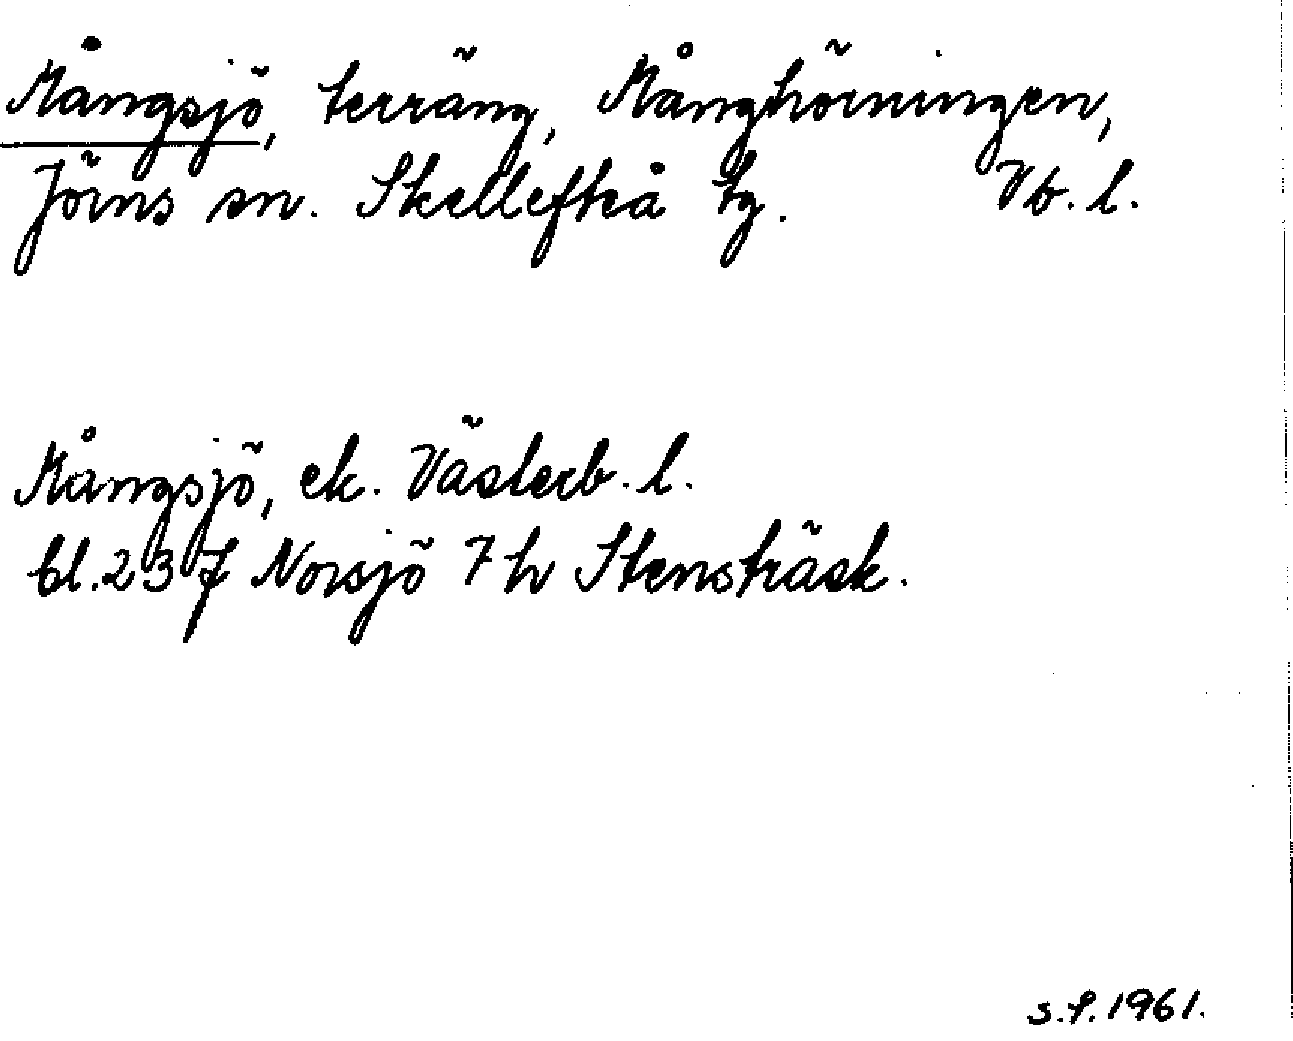 Mångsjö, terräng, Månghörningen,
Jörns sn. Skellefteå tg. Vb. l.
Mångsjö, ek. Västerb. l.
bl. 237 Norsjö 7 h Stensträsk.
S.f. 1961.